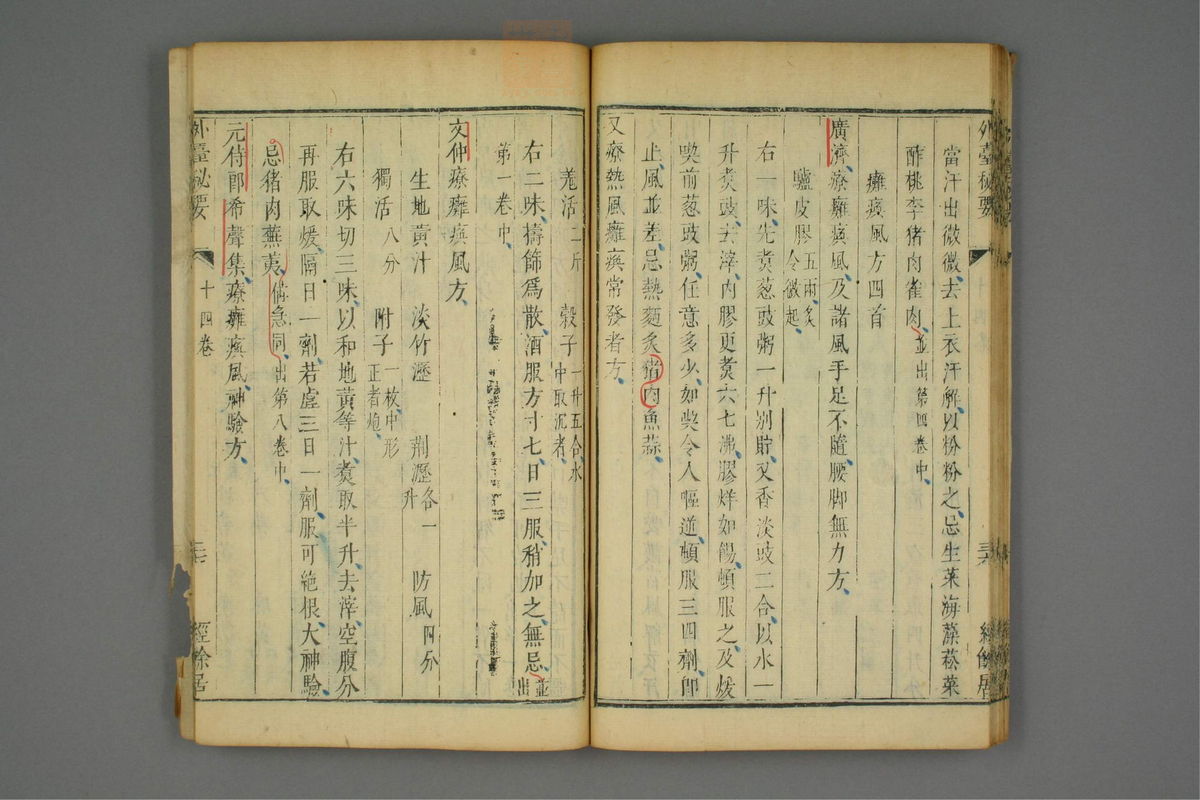 外臺祕要
當汗出微微去上衣汗解以粉粉之忌生菜海藻菘菜
酢桃李猪肉雀肉並出第四卷中
癱瘓風方四首
廣濟療癱瘓風及諸風手足不隨腰脚無力方
驢皮膠五兩炙令微起
右一味先煑葱豉粥一升別貯又香淡豉二合以水一
升煑豉去滓內膠更煑六七沸膠烊如餳頓服之及煖
喫前葱豉粥任意多少如喫令人嘔逆頓服三四劑即
止風並差忌熱麵炙猪肉魚蒜
又療熱風癱瘓常發者方
羗活二斤 穀子一升五合水中取沉者
右二味擣篩爲散酒服方寸匕日三服稍加之無忌並出
第一卷中
文仲療癱瘓風方
生地黃汁 淡竹瀝 荆瀝各一升 防風四分
獨活八分 附子一枚中形正者炮
右六味切三味以和地黃等汁煑取半升去滓空腹分
再服取煖隔日一劑若虛三日一劑服可絶根大神驗
忌猪肉蕪荑備急同出第八卷中
元侍郎希聲集療癱瘓風神驗方
外臺祕要 十四卷 經餘居